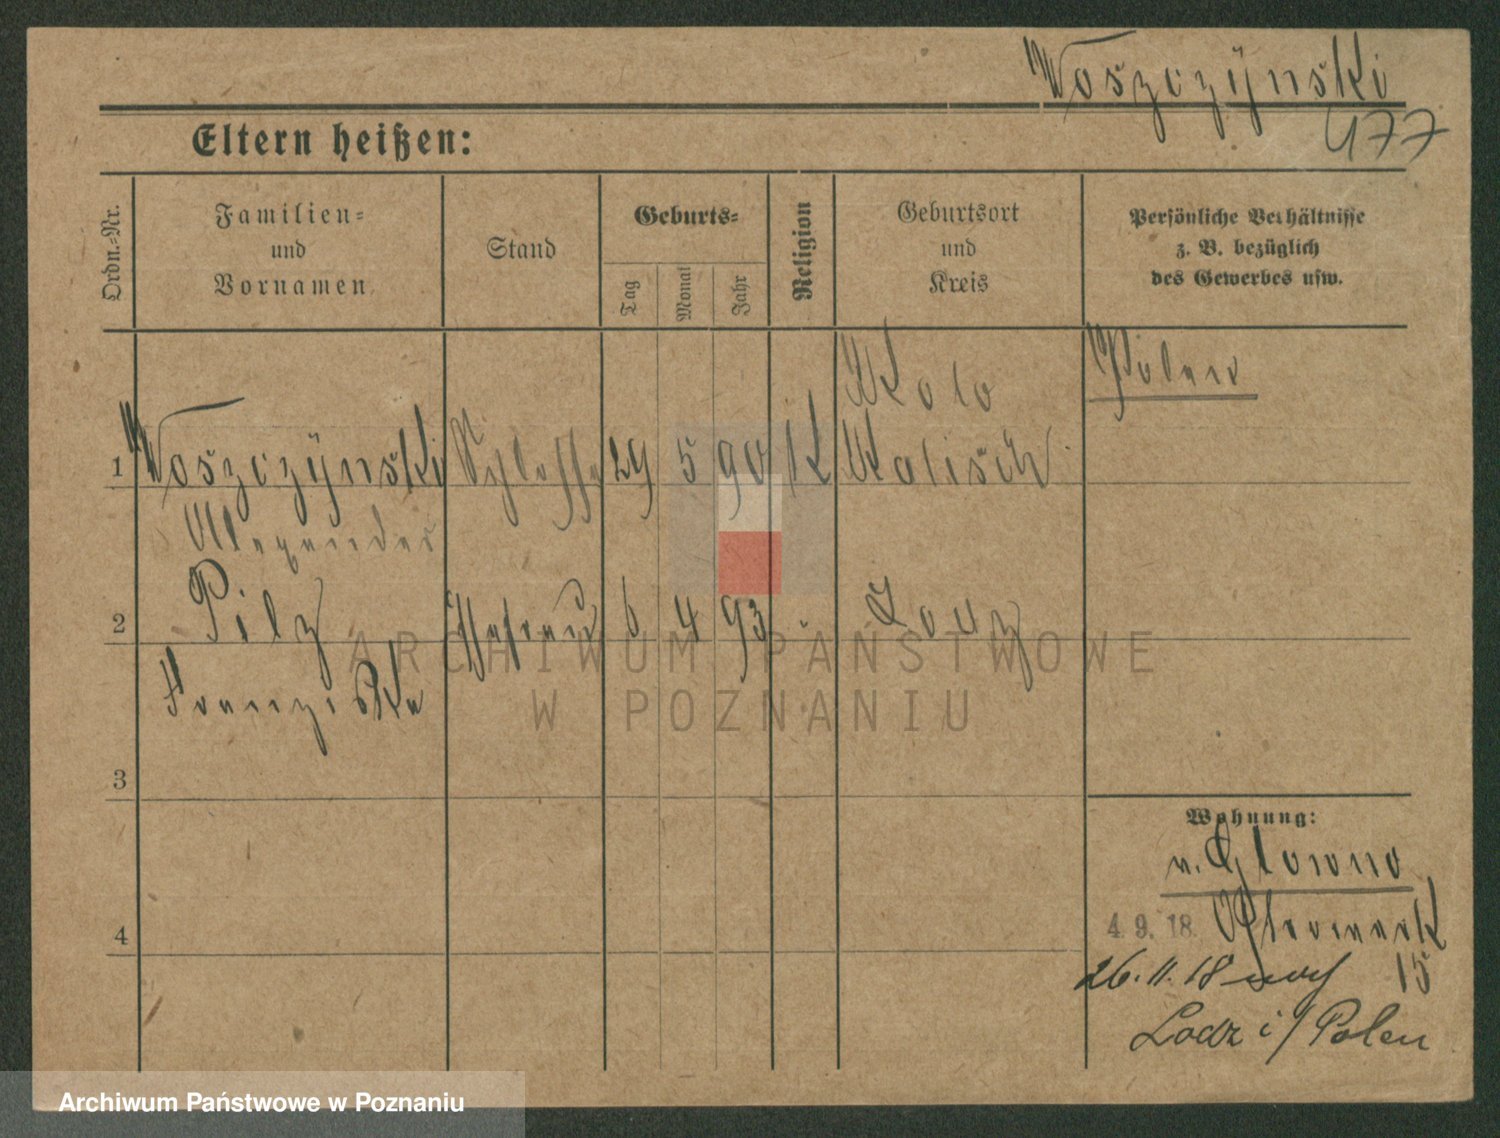 Woszczÿnski
477
Eltern heißen:
Ordn.-Nr.
Familien-
und
Vornamen
Stand
Geburts-
Tag
Monat
Jahr
Religion
Geburtsort
und
Kreis
Persönliche Verhältnisse
z. B. bezüglich
des Gewerbes usw.
Kolo
Polen
1 Woszczÿnski 29 5 90 K Kalisch
Alexander
2 Pilz Ehefrau 6 4 93 Lodz
Franziska
3
4
Wohnung:
v. Glowno
4. 9. 18.
26. 11. 18 nach 15
Lodz i/Polen
ARCHIWUM PAŃSTWOWE
W POZNANIU
Archiwum Państwowe w Poznaniu